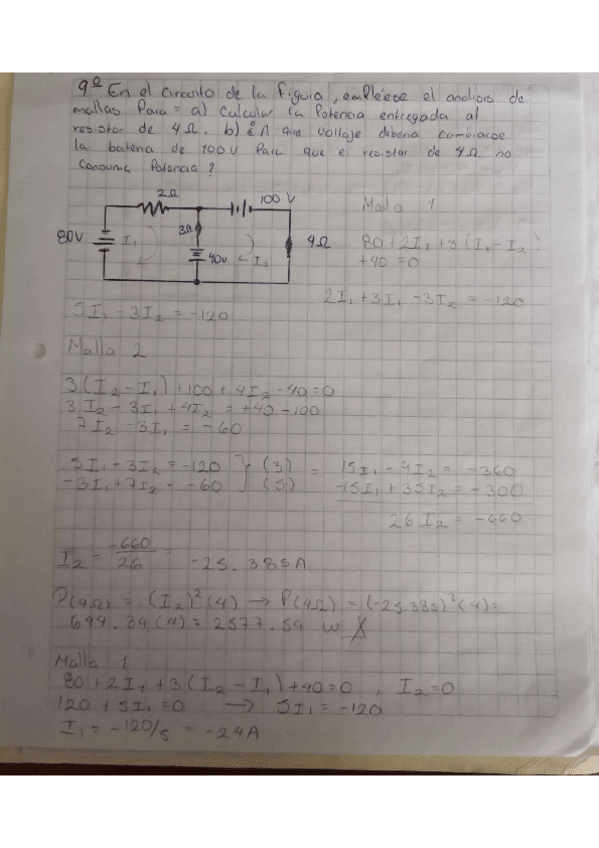 9º En el circuito de la figura, empléese el analisis de
mallas Para = a) Calcular la Potencia entregada al
resistor de 4 Ω. b) ¿A que Voltaje debena cambiarse
la batena de 100 V Para que el resistor de 4 Ω no
Consuma Potencia?
2Ω
100 V
Malla 1
80V
I₁
3Ω
40v
I₂
4Ω
80 + 2I₁ + 3 (I₁ - I₂)
+40 = 0
2I₁ + 3I₁ - 3I₂ = -120
5I₁ - 3I₂ = -120
Malla 2
3(I₂ - I₁) + 100 + 4I₂ - 40 = 0
3I₂ - 3I₁ + 4I₂ = +40 - 100
7I₂ - 3I₁ = -60
5I₁ - 3I₂ = -120 } (3) = 15I₁ - 9I₂ = -360
-3I₁ + 7I₂ = -60 } (5) -15I₁ + 35I₂ = -300
26I₂ = -660
I₂ = -660/26 = -25.385A
P(4Ω) = (I₂)²(4) → P(4Ω) = (-25.385)²(4) =
644.39(4) = 2577.59 w
Malla 1
80 + 2I₁ + 3(I₂ - I₁) + 40 = 0 , I₂ = 0
120 + 5I₁ = 0 → 5I₁ = -120
I₁ = -120/5 = -24A